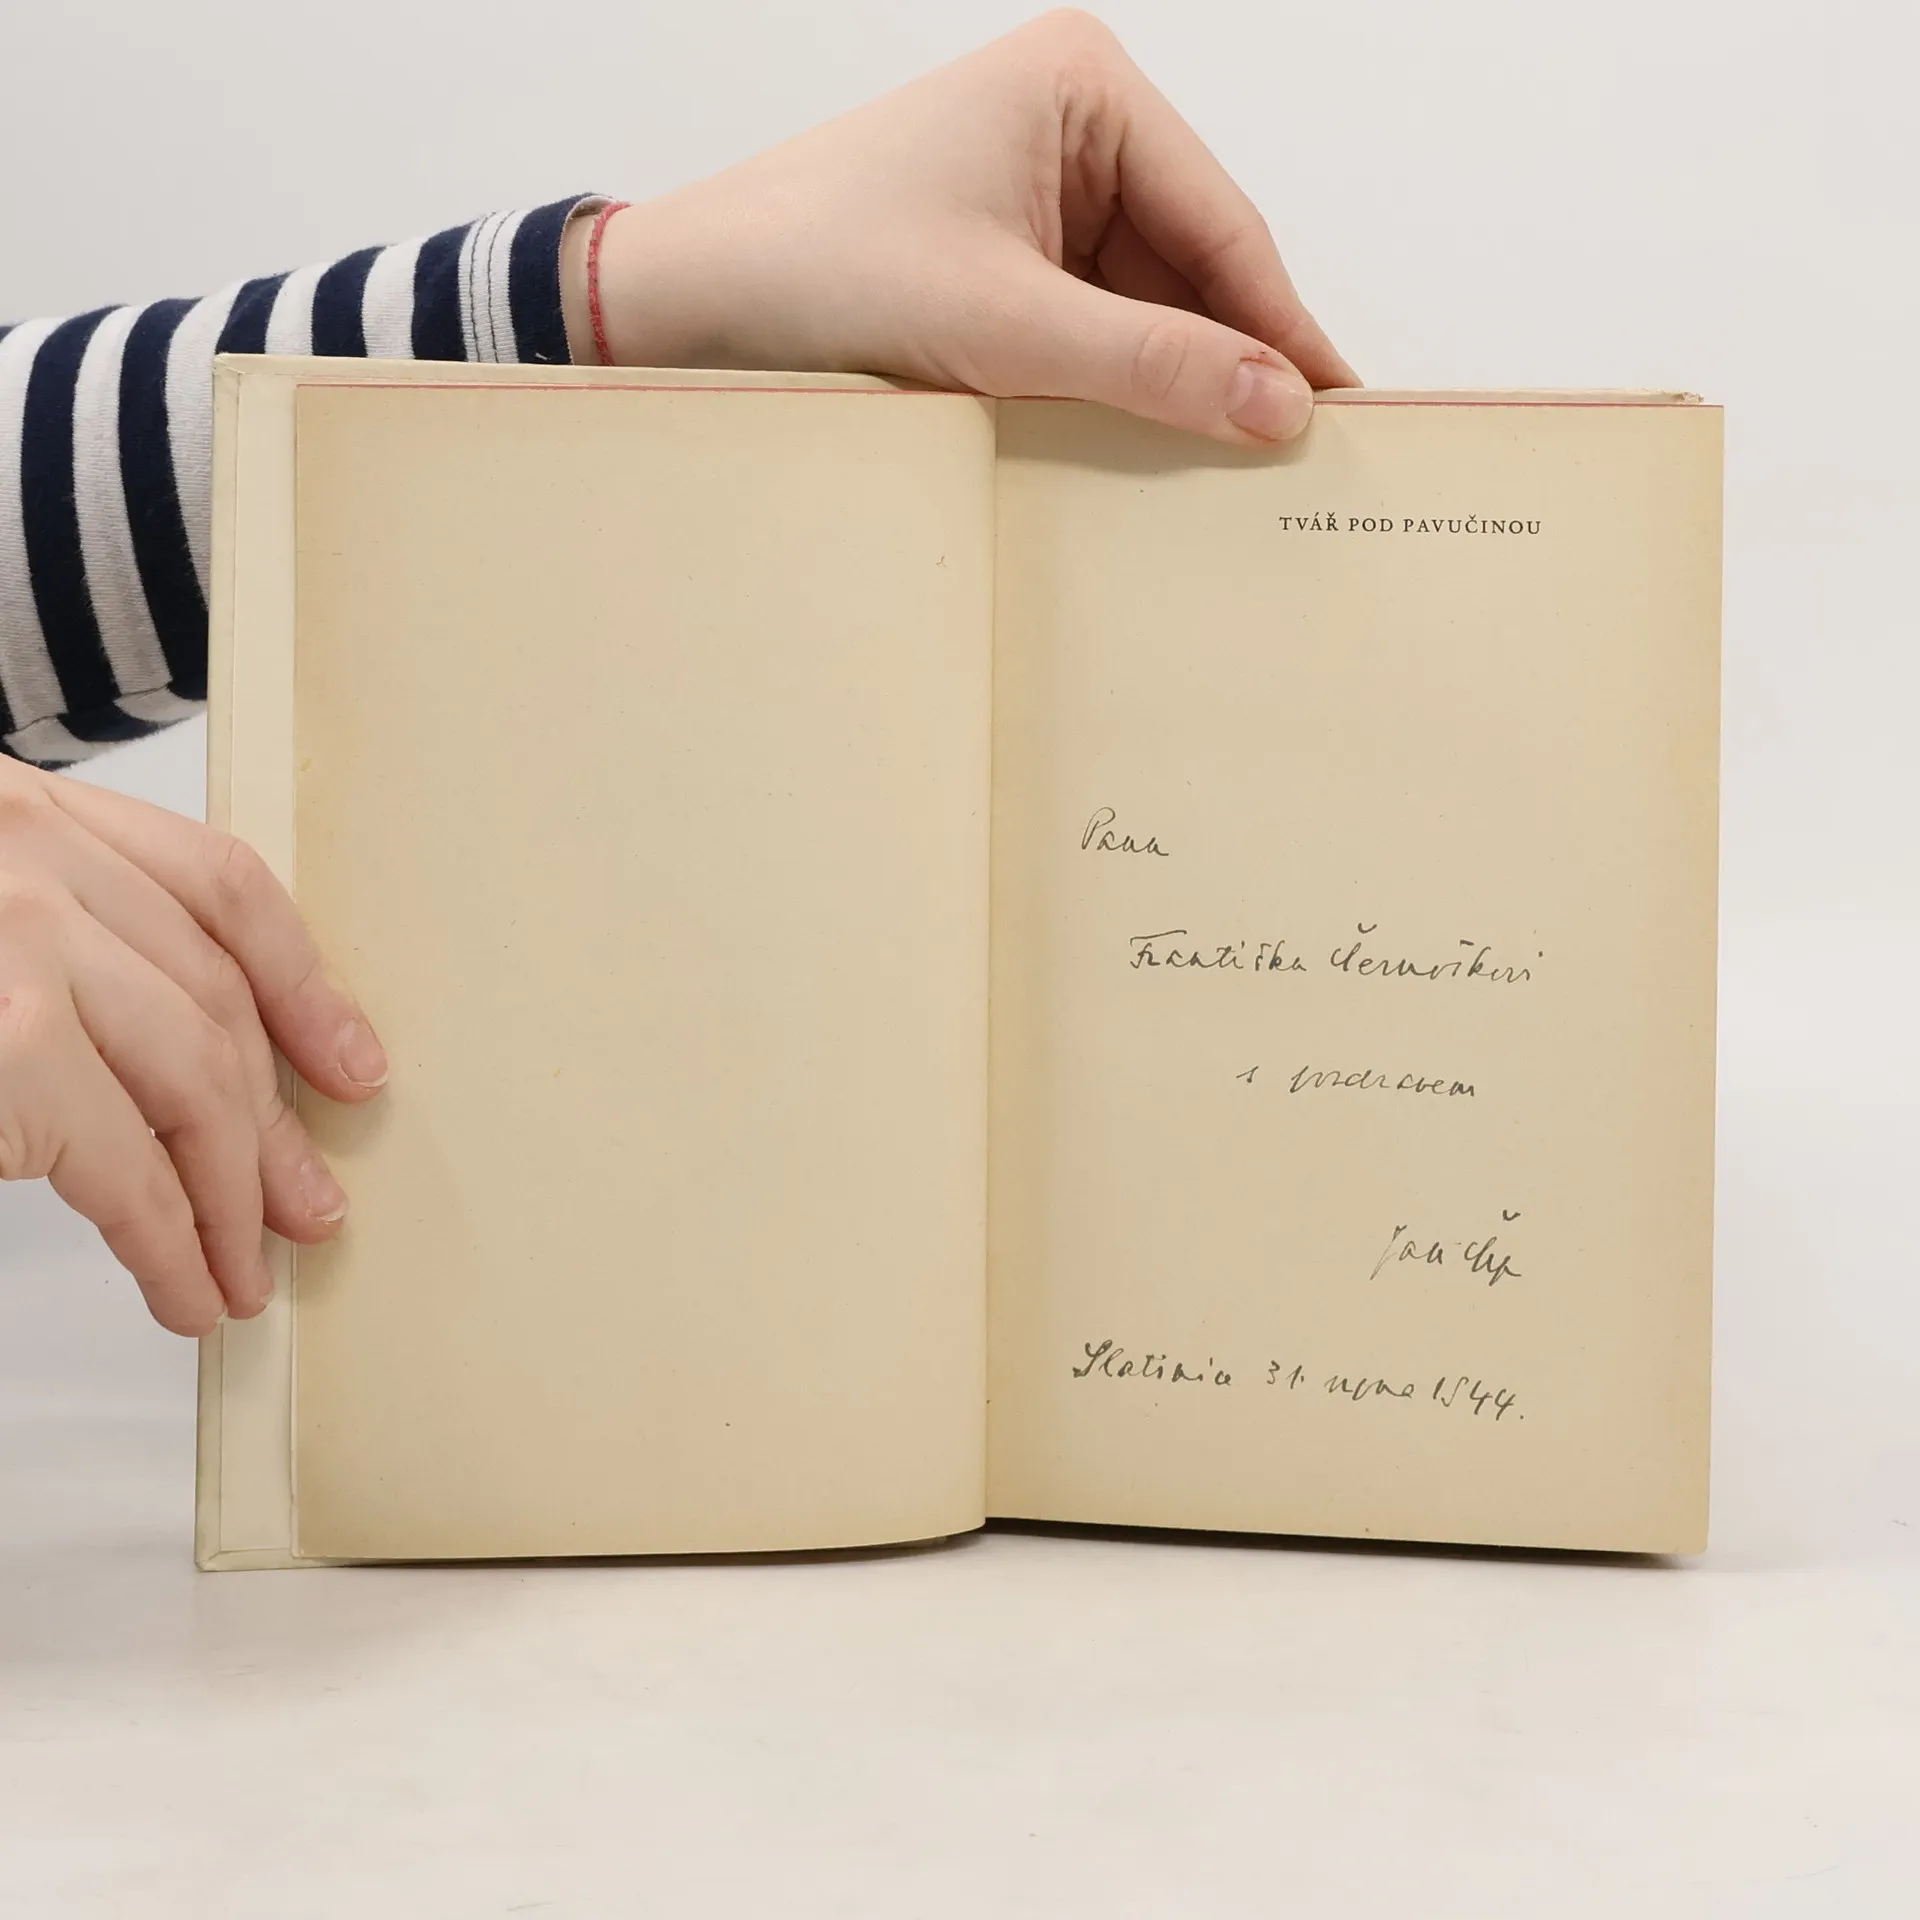 TVÁŘ POD PAVUČINOU
Panu
Františku Černouškovi
s pozdravem
Jan Čep
Slatinice 31. srpna 1944.